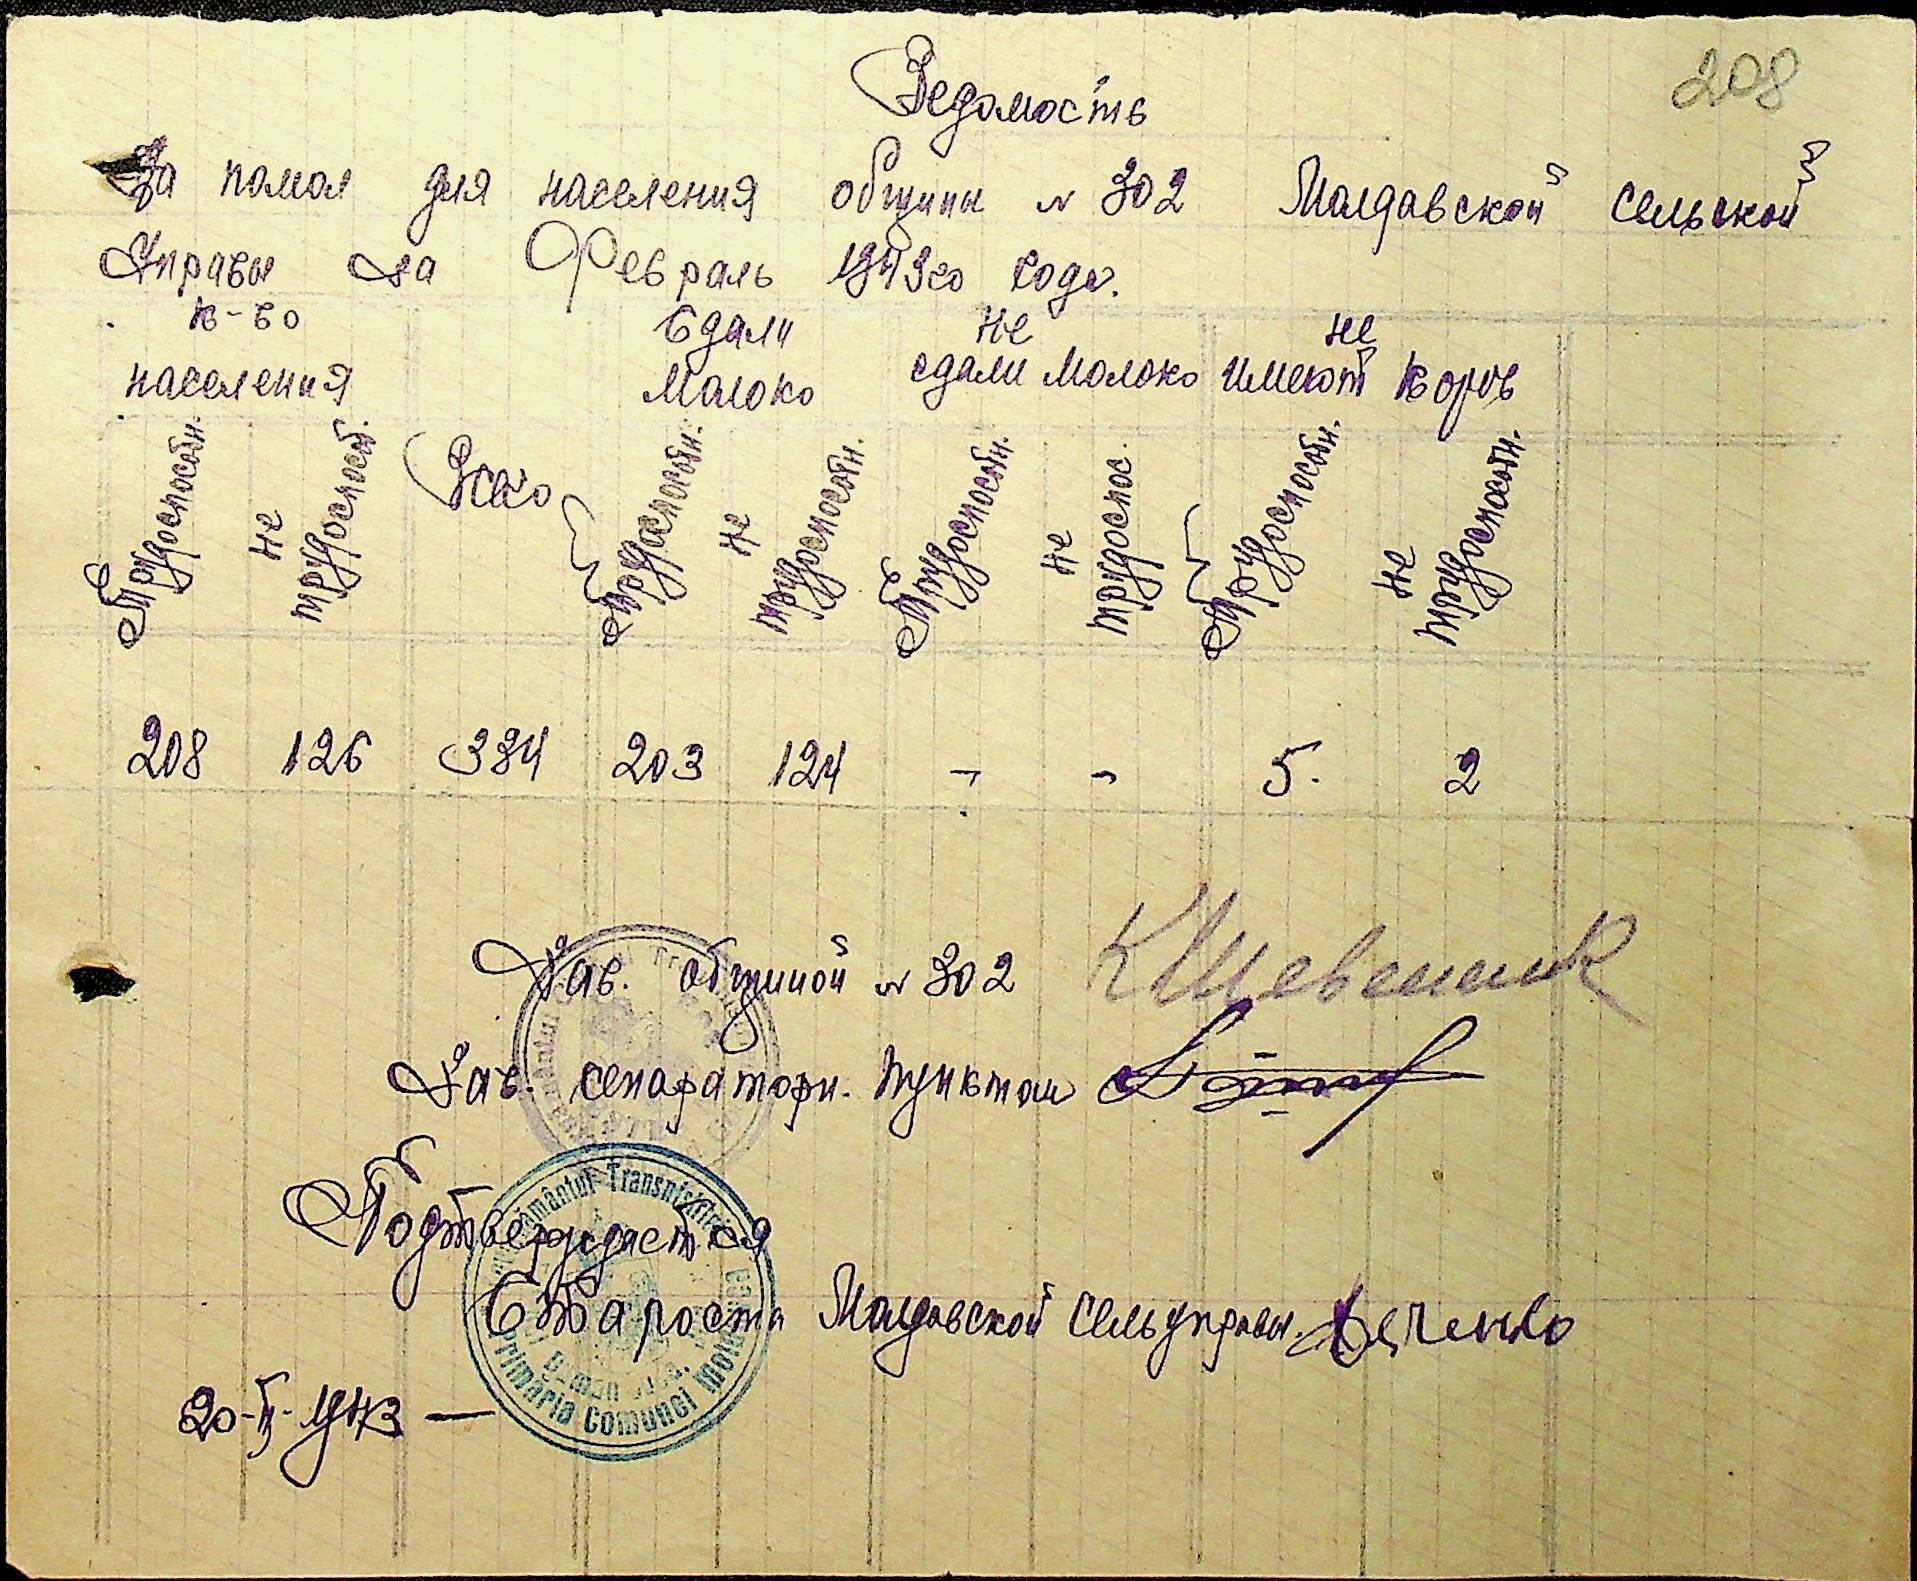 208
Ведомость
За помол для населения общины № 302 Молдавской сельской
Управы за Февраль 1943го года.
к-во населения
Сдали Молоко
не сдали молоко
не имеют коров
Трудоспособн.
не трудоспособ.
Всего
Трудоспособн.
не трудоспособн.
Трудоспособн.
не трудоспос.
Трудоспособн.
не трудоспособн.
208 126 334 203 124 - - 5. 2
Зав. общиной № 302
Зав. сепараторн. пунктом
Подтверждается
Староста Молдавской сельуправы.
20-II-1943 —
Transnistriei
Primăria Comunei